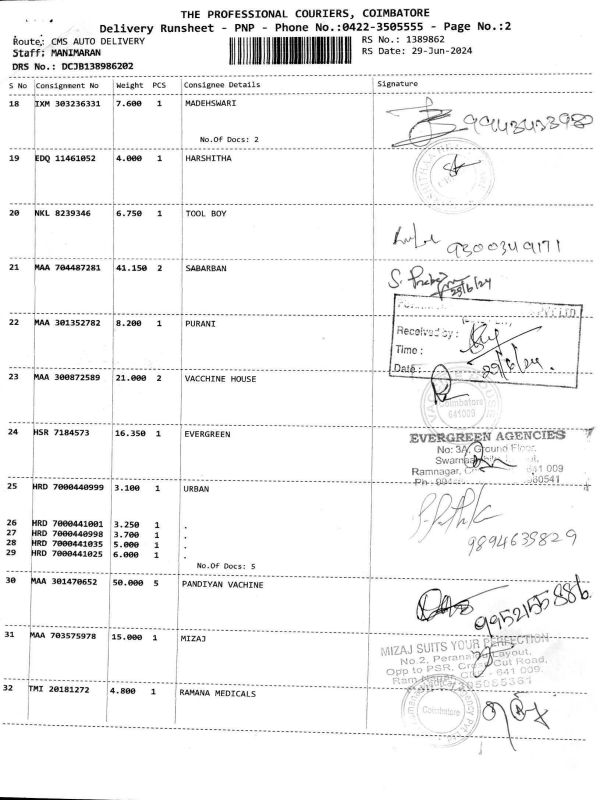 THE PROFESSIONAL COURIERS, COIMBATORE
Delivery Runsheet - PNP - Phone No.:0422-3505555 - Page No.:2
Route: CMS AUTO DELIVERY
RS No.: 1389862
Staff: MANIMARAN
RS Date: 29-Jun-2024
DRS No.: DCJB138986202
S No Consignment No Weight PCS Consignee Details Signature
18 IXM 303236331 7.600 1 MADEHSWARI
No.Of Docs: 2
9943433980
19 EDQ 11461052 4.000 1 HARSHITHA
20 NKL 8239346 6.750 1 TOOL BOY
9300349171
21 MAA 704487281 41.150 2 SABARBAN
29/6/24
22 MAA 301352782 8.200 1 PURANI
PVT LTD
Received by :
Time :
Date : 29/6/24.
23 MAA 300872589 21.000 2 VACCHINE HOUSE
Coimbatore
641009
24 HSR 7184573 16.350 1 EVERGREEN
EVERGREEN AGENCIES
No: 3A, Ground Floor,
Ramnagar, 641 009
25 HRD 7000440999 3.100 1 URBAN
26 HRD 7000441001 3.250 1 .
27 HRD 7000440998 3.700 1 .
28 HRD 7000441035 5.000 1 .
29 HRD 7000441025 6.000 1 .
No.Of Docs: 5
9894639829
30 MAA 301470652 50.000 5 PANDIYAN VACHINE
9952155886
31 MAA 703575978 15.000 1 MIZAJ
MIZAJ SUITS YOUR PERFECTION
No.2, Layout,
Opp to PSR, Cut Road,
641 009.
32 TMI 20181272 4.800 1 RAMANA MEDICALS
Coimbatore